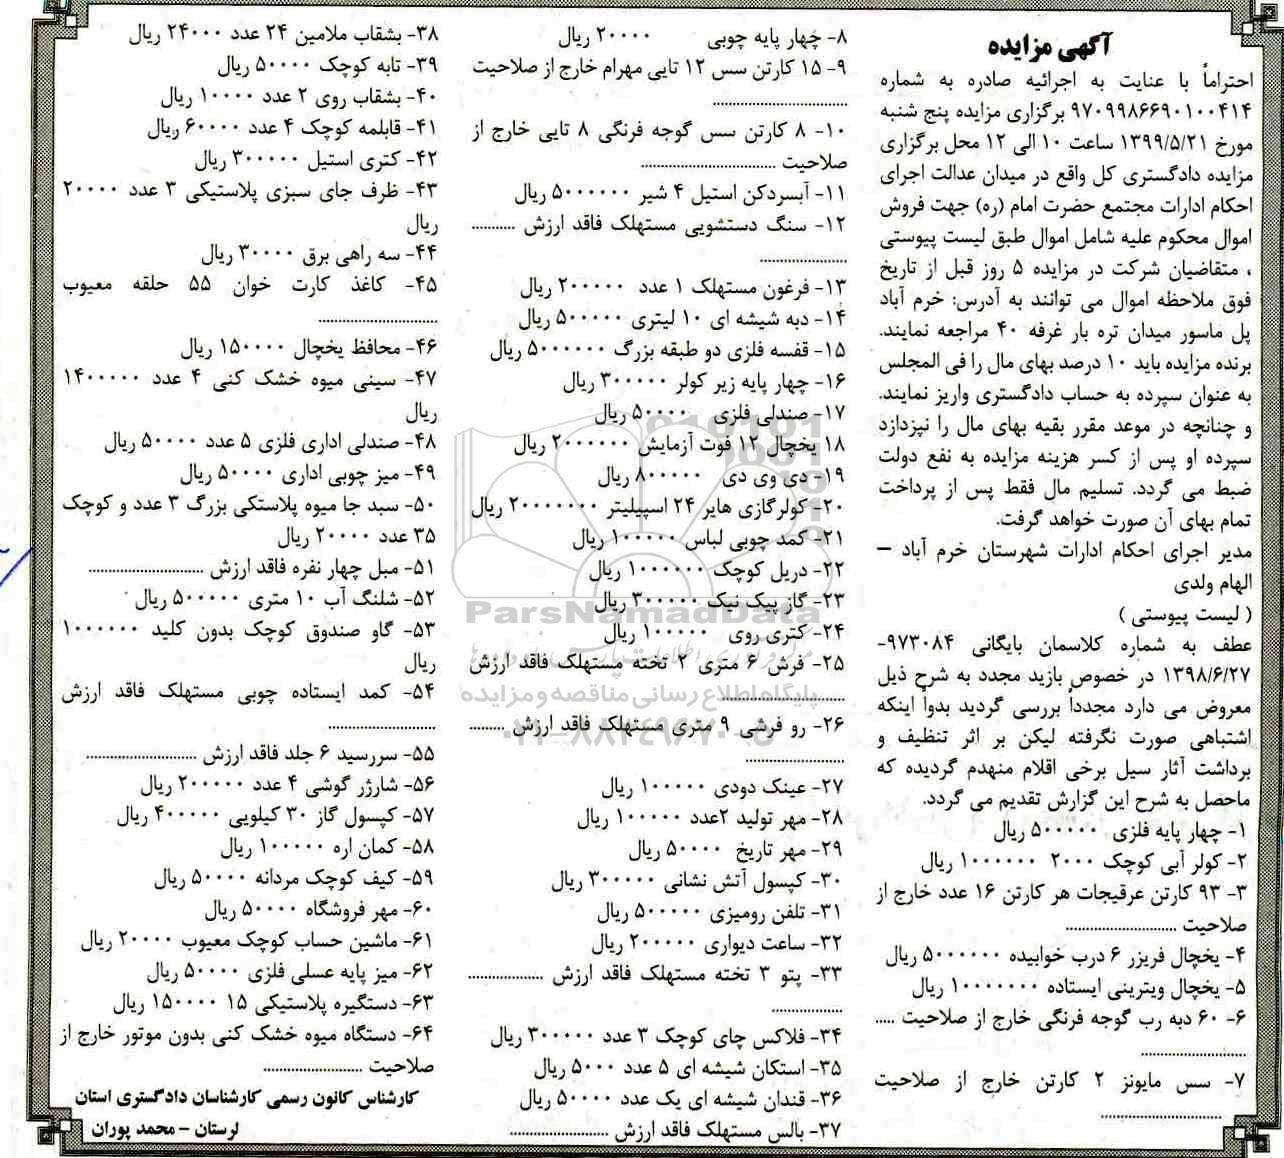 آگهی مزایده
احتراماً با عنایت به اجرائیه صادره به شماره
۹۷۰۹۹۸۶۶۹۰۱۰۰۴۱۴ برگزاری مزایده پنج شنبه
مورخ ۱۳۹۹/۵/۲۱ ساعت ۱۰ الی ۱۲ محل برگزاری
مزایده دادگستری کل واقع در میدان عدالت اجرای
احکام ادارات مجتمع حضرت امام (ره) جهت فروش
اموال محکوم علیه شامل اموال طبق لیست پیوستی
، متقاضیان شرکت در مزایده ۵ روز قبل از تاریخ
فوق ملاحظه اموال می توانند به آدرس: خرم آباد
پل ماسور میدان تره بار غرفه ۴۰ مراجعه نمایند.
برنده مزایده باید ۱۰ درصد بهای مال را فی المجلس
به عنوان سپرده به حساب دادگستری واریز نمایند.
و چنانچه در موعد مقرر بقیه بهای مال را نپزدازد
سپرده او پس از کسر هزینه مزایده به نفع دولت
ضبط می گردد. تسلیم مال فقط پس از پرداخت
تمام بهای آن صورت خواهد گرفت.
مدیر اجرای احکام ادارات شهرستان خرم آباد –
الهام ولدی
( لیست پیوستی )
عطف به شماره کلاسمان بایگانی ۹۷۳۰۸۴-
۱۳۹۸/۶/۲۷ در خصوص بازید مجدد به شرح ذیل
معروض می دارد مجدداً بررسی گردید بدواً اینکه
اشتباهی صورت نگرفته لیکن بر اثر تنظیف و
برداشت آثار سیل برخی اقلام منهدم گردیده که
ماحصل به شرح این گزارش تقدیم می گردد.
۱- چهار پایه فلزی ۵۰۰۰۰۰ ریال
۲- کولر آبی کوچک ۲۰۰۰ ۱۰۰۰۰۰۰ ریال
۳- ۹۳ کارتن عرقیجات هر کارتن ۱۶ عدد خارج از
صلاحیت ..........................
۴- یخچال فریزر ۶ درب خوابیده ۵۰۰۰۰۰۰ ریال
۵- یخچال ویترینی ایستاده ۱۰۰۰۰۰۰۰ ریال
۶- ۶۰ دبه رب گوجه فرنگی خارج از صلاحیت .....
..........................
۷- سس مایونز ۲ کارتن خارج از صلاحیت
..............................
۸- چهار پایه چوبی ۲۰۰۰۰ ریال
۹- ۱۵ کارتن سس ۱۲ تایی مهرام خارج از صلاحیت
..............................
۱۰- ۸ کارتن سس گوجه فرنگی ۸ تایی خارج از
صلاحیت ..............................
۱۱- آبسردکن استیل ۴ شیر ۵۰۰۰۰۰۰ ریال
۱۲- سنگ دستشویی مستهلک فاقد ارزش ..........
....................
۱۳- فرغون مستهلک ۱ عدد ۲۰۰۰۰۰ ریال
۱۴- دبه شیشه ای ۱۰ لیتری ۵۰۰۰۰۰ ریال
۱۵- قفسه فلزی دو طبقه بزرگ ۵۰۰۰۰۰۰ ریال
۱۶- چهار پایه زیر کولر ۳۰۰۰۰۰ ریال
۱۷- صندلی فلزی ۵۰۰۰۰ ریال
۱۸ یخچال ۱۲ فوت آزمایش ۲۰۰۰۰۰۰ ریال
۱۹- دی وی دی ۸۰۰۰۰۰ ریال
۲۰- کولرگازی هایر ۲۴ اسپیلیتر ۲۰۰۰۰۰۰۰ ریال
۲۱- کمد چوبی لباس ۱۰۰۰۰۰ ریال
۲۲- دریل کوچک ۱۰۰۰۰۰۰ ریال
۲۳- گاز پیک نیک ۳۰۰۰۰۰ ریال
۲۴- کتری روی ۱۰۰۰۰۰ ریال
۲۵- فرش ۶ متری ۲ تخته مستهلک فاقد ارزش
..............................
۲۶- رو فرشی ۹ متری مستهلک فاقد ارزش ........
......................
۲۷- عینک دودی ۱۰۰۰۰۰ ریال
۲۸- مهر تولید ۲عدد ۱۰۰۰۰۰ ریال
۲۹- مهر تاریخ ۵۰۰۰۰ ریال
۳۰- کپسول آتش نشانی ۳۰۰۰۰۰ ریال
۳۱- تلفن رومیزی ۵۰۰۰۰۰ ریال
۳۲- ساعت دیواری ۲۰۰۰۰۰ ریال
۳۳- پتو ۳ تخته مستهلک فاقد ارزش ..................
..................
۳۴- فلاکس چای کوچک ۳ عدد ۳۰۰۰۰۰ ریال
۳۵- استکان شیشه ای ۵ عدد ۵۰۰۰ ریال
۳۶- قندان شیشه ای یک عدد ۵۰۰۰۰ ریال
۳۷- بالس مستهلک فاقد ارزش ......................
۳۸- بشقاب ملامین ۲۴ عدد ۲۴۰۰۰ ریال
۳۹- تابه کوچک ۵۰۰۰۰ ریال
۴۰- بشقاب روی ۲ عدد ۱۰۰۰۰ ریال
۴۱- قابلمه کوچک ۴ عدد ۶۰۰۰۰ ریال
۴۲- کتری استیل ۳۰۰۰۰۰ ریال
۴۳- ظرف جای سبزی پلاستیکی ۳ عدد ۲۰۰۰۰
ریال
۴۴- سه راهی برق ۳۰۰۰۰ ریال
۴۵- کاغذ کارت خوان ۵۵ حلقه معیوب
..........................
۴۶- محافظ یخچال ۱۵۰۰۰۰ ریال
۴۷- سینی میوه خشک کنی ۴ عدد ۱۴۰۰۰۰۰
ریال
۴۸- صندلی اداری فلزی ۵ عدد ۵۰۰۰۰ ریال
۴۹- میز چوبی اداری ۵۰۰۰۰ ریال
۵۰- سبد جا میوه پلاستکی بزرگ ۳ عدد و کوچک
۳۵ عدد ۲۰۰۰۰ ریال
۵۱- مبل چهار نفره فاقد ارزش ..........................
۵۲- شلنگ آب ۱۰ متری ۵۰۰۰۰۰ ریال
۵۳- گاو صندوق کوچک بدون کلید ۱۰۰۰۰۰۰
ریال
۵۴- کمد ایستاده چوبی مستهلک فاقد ارزش
........................
۵۵- سررسید ۶ جلد فاقد ارزش ........................
۵۶- شارژر گوشی ۴ عدد ۲۰۰۰۰۰ ریال
۵۷- کپسول گاز ۳۰ کیلویی ۴۰۰۰۰۰ ریال
۵۸- کمان اره ۱۰۰۰۰۰ ریال
۵۹- کیف کوچک مردانه ۵۰۰۰۰ ریال
۶۰- مهر فروشگاه ۵۰۰۰۰ ریال
۶۱- ماشین حساب کوچک معیوب ۲۰۰۰۰ ریال
۶۲- میز پایه عسلی فلزی ۵۰۰۰۰ ریال
۶۳- دستگیره پلاستیکی ۱۵ ۱۵۰۰۰۰ ریال
۶۴- دستگاه میوه خشک کنی بدون موتور خارج از
صلاحیت ......................
کارشناس کانون رسمی کارشناسان دادگستری استان
لرستان – محمد پوران
ParsNamadData
پایگاه اطلاع رسانی مناقصه و مزایده
۰۲۱-۸۸۳۴۹۶۷۰-۵